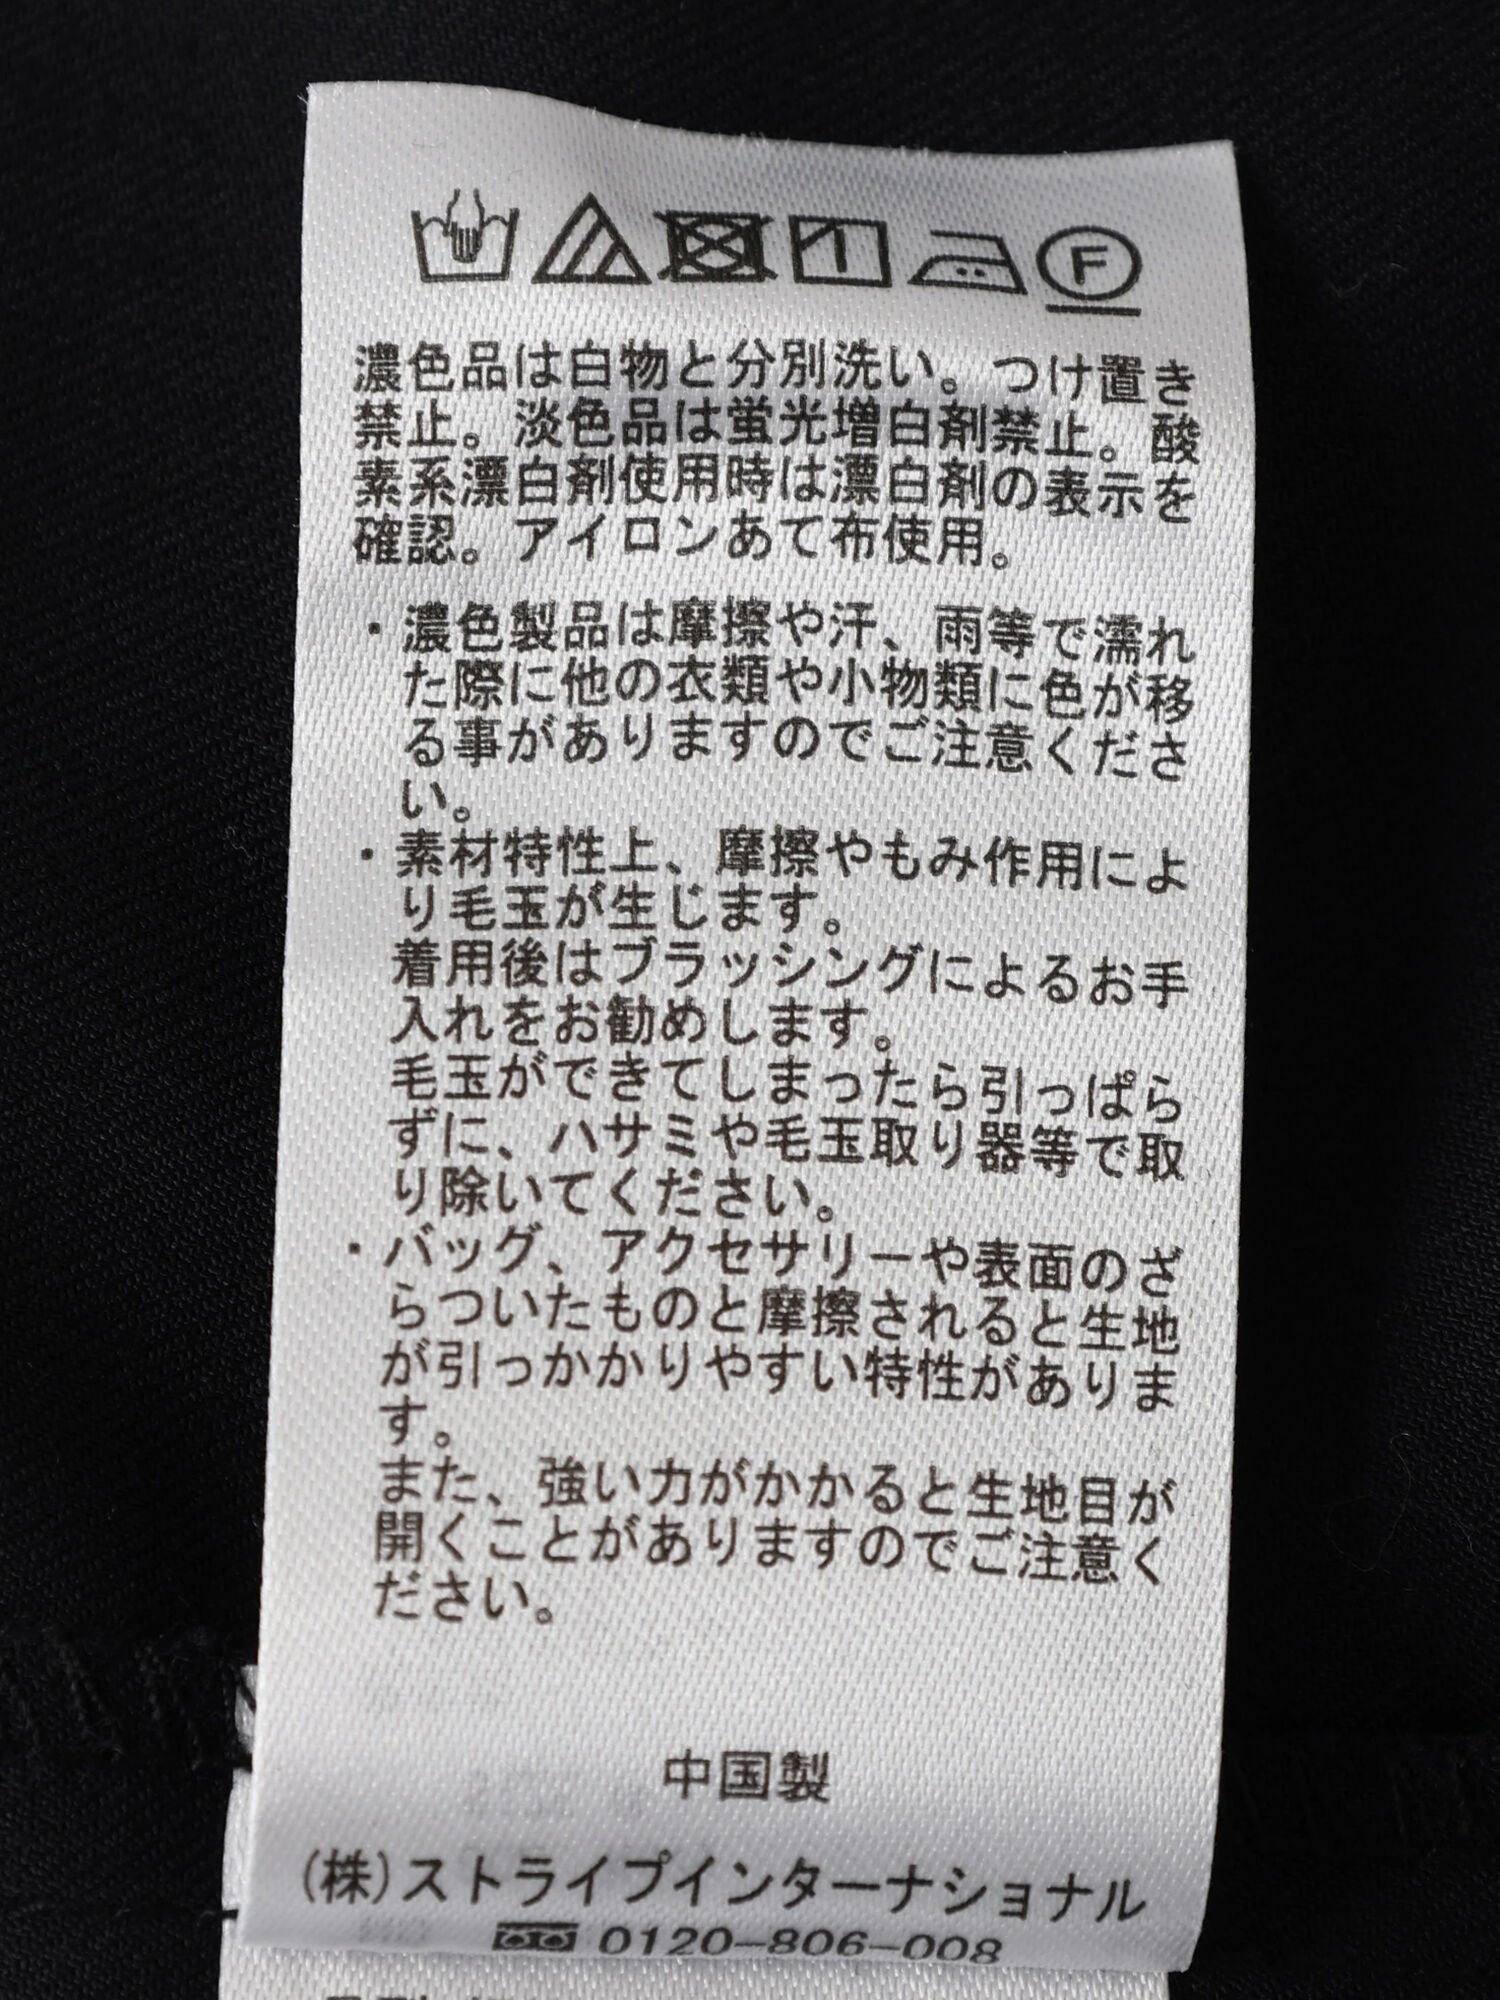 F
濃色品は白物と分別洗い。つけ置き
禁止。淡色品は蛍光増白剤禁止。酸
素系漂白剤使用時は漂白剤の表示を
確認。アイロンあて布使用。
・濃色製品は摩擦や汗、雨等で濡れ
た際に他の衣類や小物類に色が移
る事がありますのでご注意くださ
い。
・素材特性上、摩擦やもみ作用によ
り毛玉が生じます。
着用後はブラッシングによるお手
入れをお勧めします。
毛玉ができてしまったら引っぱら
ずに、ハサミや毛玉取り器等で取
り除いてください。
・バッグ、アクセサリーや表面のざ
らついたものと摩擦されると生地
が引っかかりやすい特性がありま
す。
また、強い力がかかると生地目が
開くことがありますのでご注意く
ださい。
中国製
(株)ストライプインターナショナル
0120-806-008